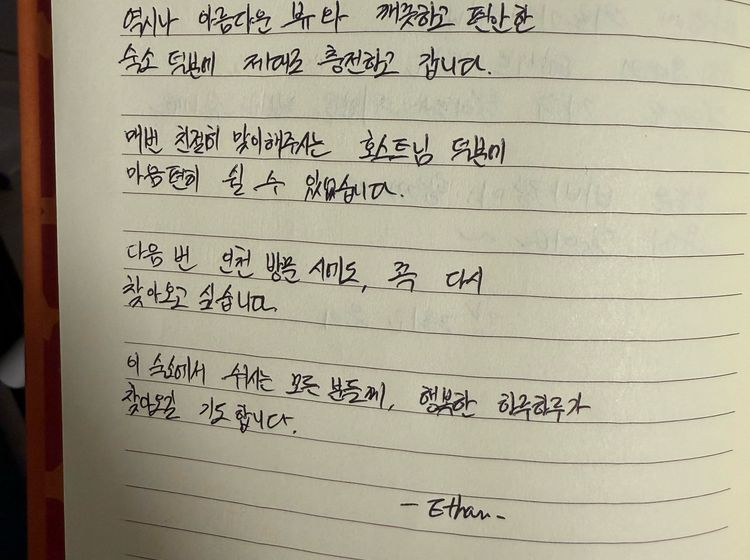 역시나 아름다운 뷰와 깨끗하고 편안한
숙소 덕분에 제대로 충전하고 갑니다.
매번 친절히 맞이해주시는 호스트님 덕분에
마음편히 쉴 수 있었습니다.
다음 번 인천 방문 시에도, 꼭 다시
찾아오고 싶습니다.
이 숙소에서 쉬시는 모든 분들께, 행복한 하루하루가
찾아오길 기도합니다.
- Ethan -